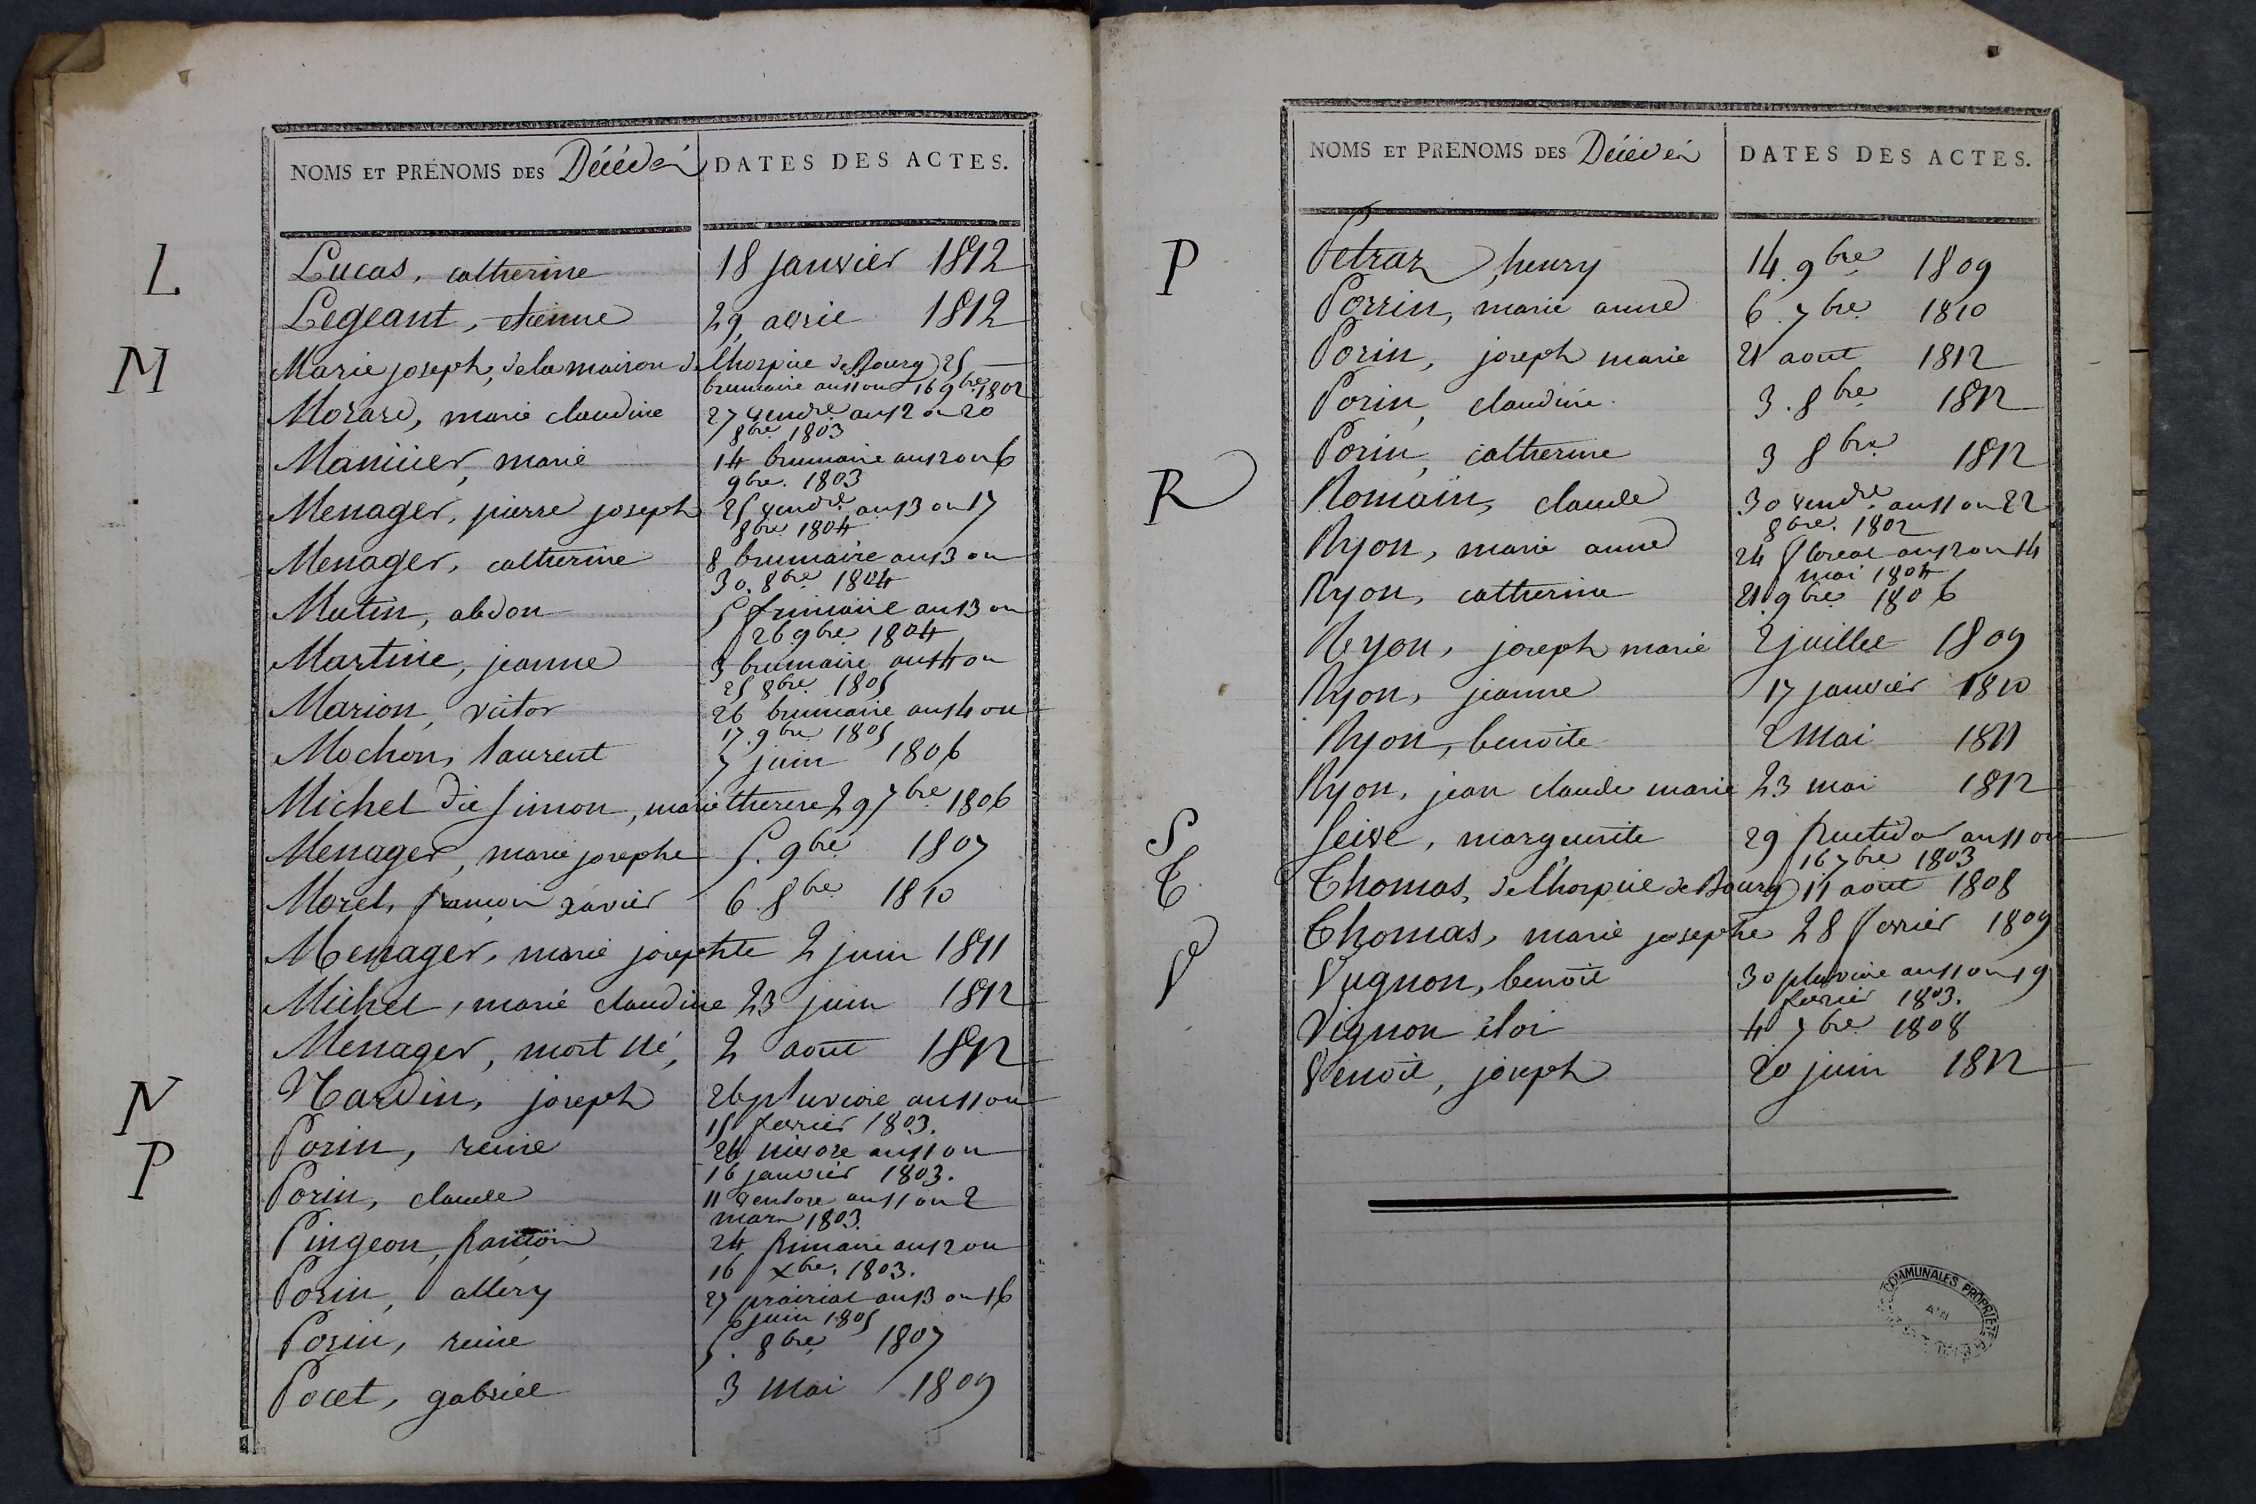 NOMS ET PRÉNOMS DES Décédés DATES DES ACTES.
L
Lucas, catherine 18 janvier 1812
Legeant, etienne 29 avril 1812
M
Marie joseph, de la maison de l'hospice de Bourg 25
brumaire an 11 ou 16 9bre 1802
Morard, marie claudine 27 vendre an 12 ou 20
8bre 1803
marie 14 brumaire an 12 ou 6
9bre. 1803
Menager, pierre joseph 25 vendre an 13 ou 17
8bre 1804
Menager, catherine 8 brumaire an 13 ou
30. 8bre 1804
Mutin, abdon 5 frimaire an 13 ou
26 9bre 1804
Martine, jeanne 3 brumaire an 14 ou
25 8bre 1805
Marion, victor 26 brumaire an 14 ou
17. 9bre 1805
Mochon, laurent 7 juin 1806
Michel dit Simon, marie therese 29 7bre 1806
Menager, marie josephe 5. 9bre 1807
Morel, françois xavier 6. 8bre 1810
Menager, marie josephte 2 juin 1811
Michel, marie claudine 23 juin 1812
Menager, mort né, 2 août 1812
N
Nardin, joseph 26 pluviose an 11 ou
15 fevrier 1803.
P
Porin, reine 26 nivose an 11 ou
16 janvier 1803.
Porin, claude 11 ventose an 11 ou 2
mars 1803.
Pingeon, françois 24 frimaire an 12 ou
16 xbre. 1803.
Porin, 27 prairial an 13 ou 16
juin 1805
Porin, reine 5. 8bre 1807
Pocet, gabriel 3 mai 1809
NOMS ET PRENOMS DES Décédés DATES DES ACTES.
P
Petraz, henry 14. 9bre 1809
Porrin, marie anne 6. 7bre 1810
Porin, joseph marie 21 aout 1812
Porin, claudine. 3. 8bre 1812
Porin, catherine 3 8bre 1812
R
Romain, claude 30 vendre an 11 ou 22
8bre. 1802
Ryon, marie anne 24 floreal an 12 ou 14
mai 1804
Ryon, catherine 21. 9bre 1806
Reyon, joseph marie 2 juillet 1809
Ryon, jeanne 17 janvier 1810
Ryon, benoite 2 mai 1811
Ryon, jean claude marie 23 mai 1812
S
Seive, marguerite 29 fructidor an 11 ou
16 7bre 1803
T
Thomas, de l'hospice de Bourg 11 aout 1808
Thomas, marie josephe 28 fevrier 1809
V
Vugnon, benoit 30 pluviose an 11 ou 19
fevrier 1803.
Vignon éloi 4 7bre 1808
Venoit, joseph 20 juin 1812
COMMUNALES PROPRIETE
AIN